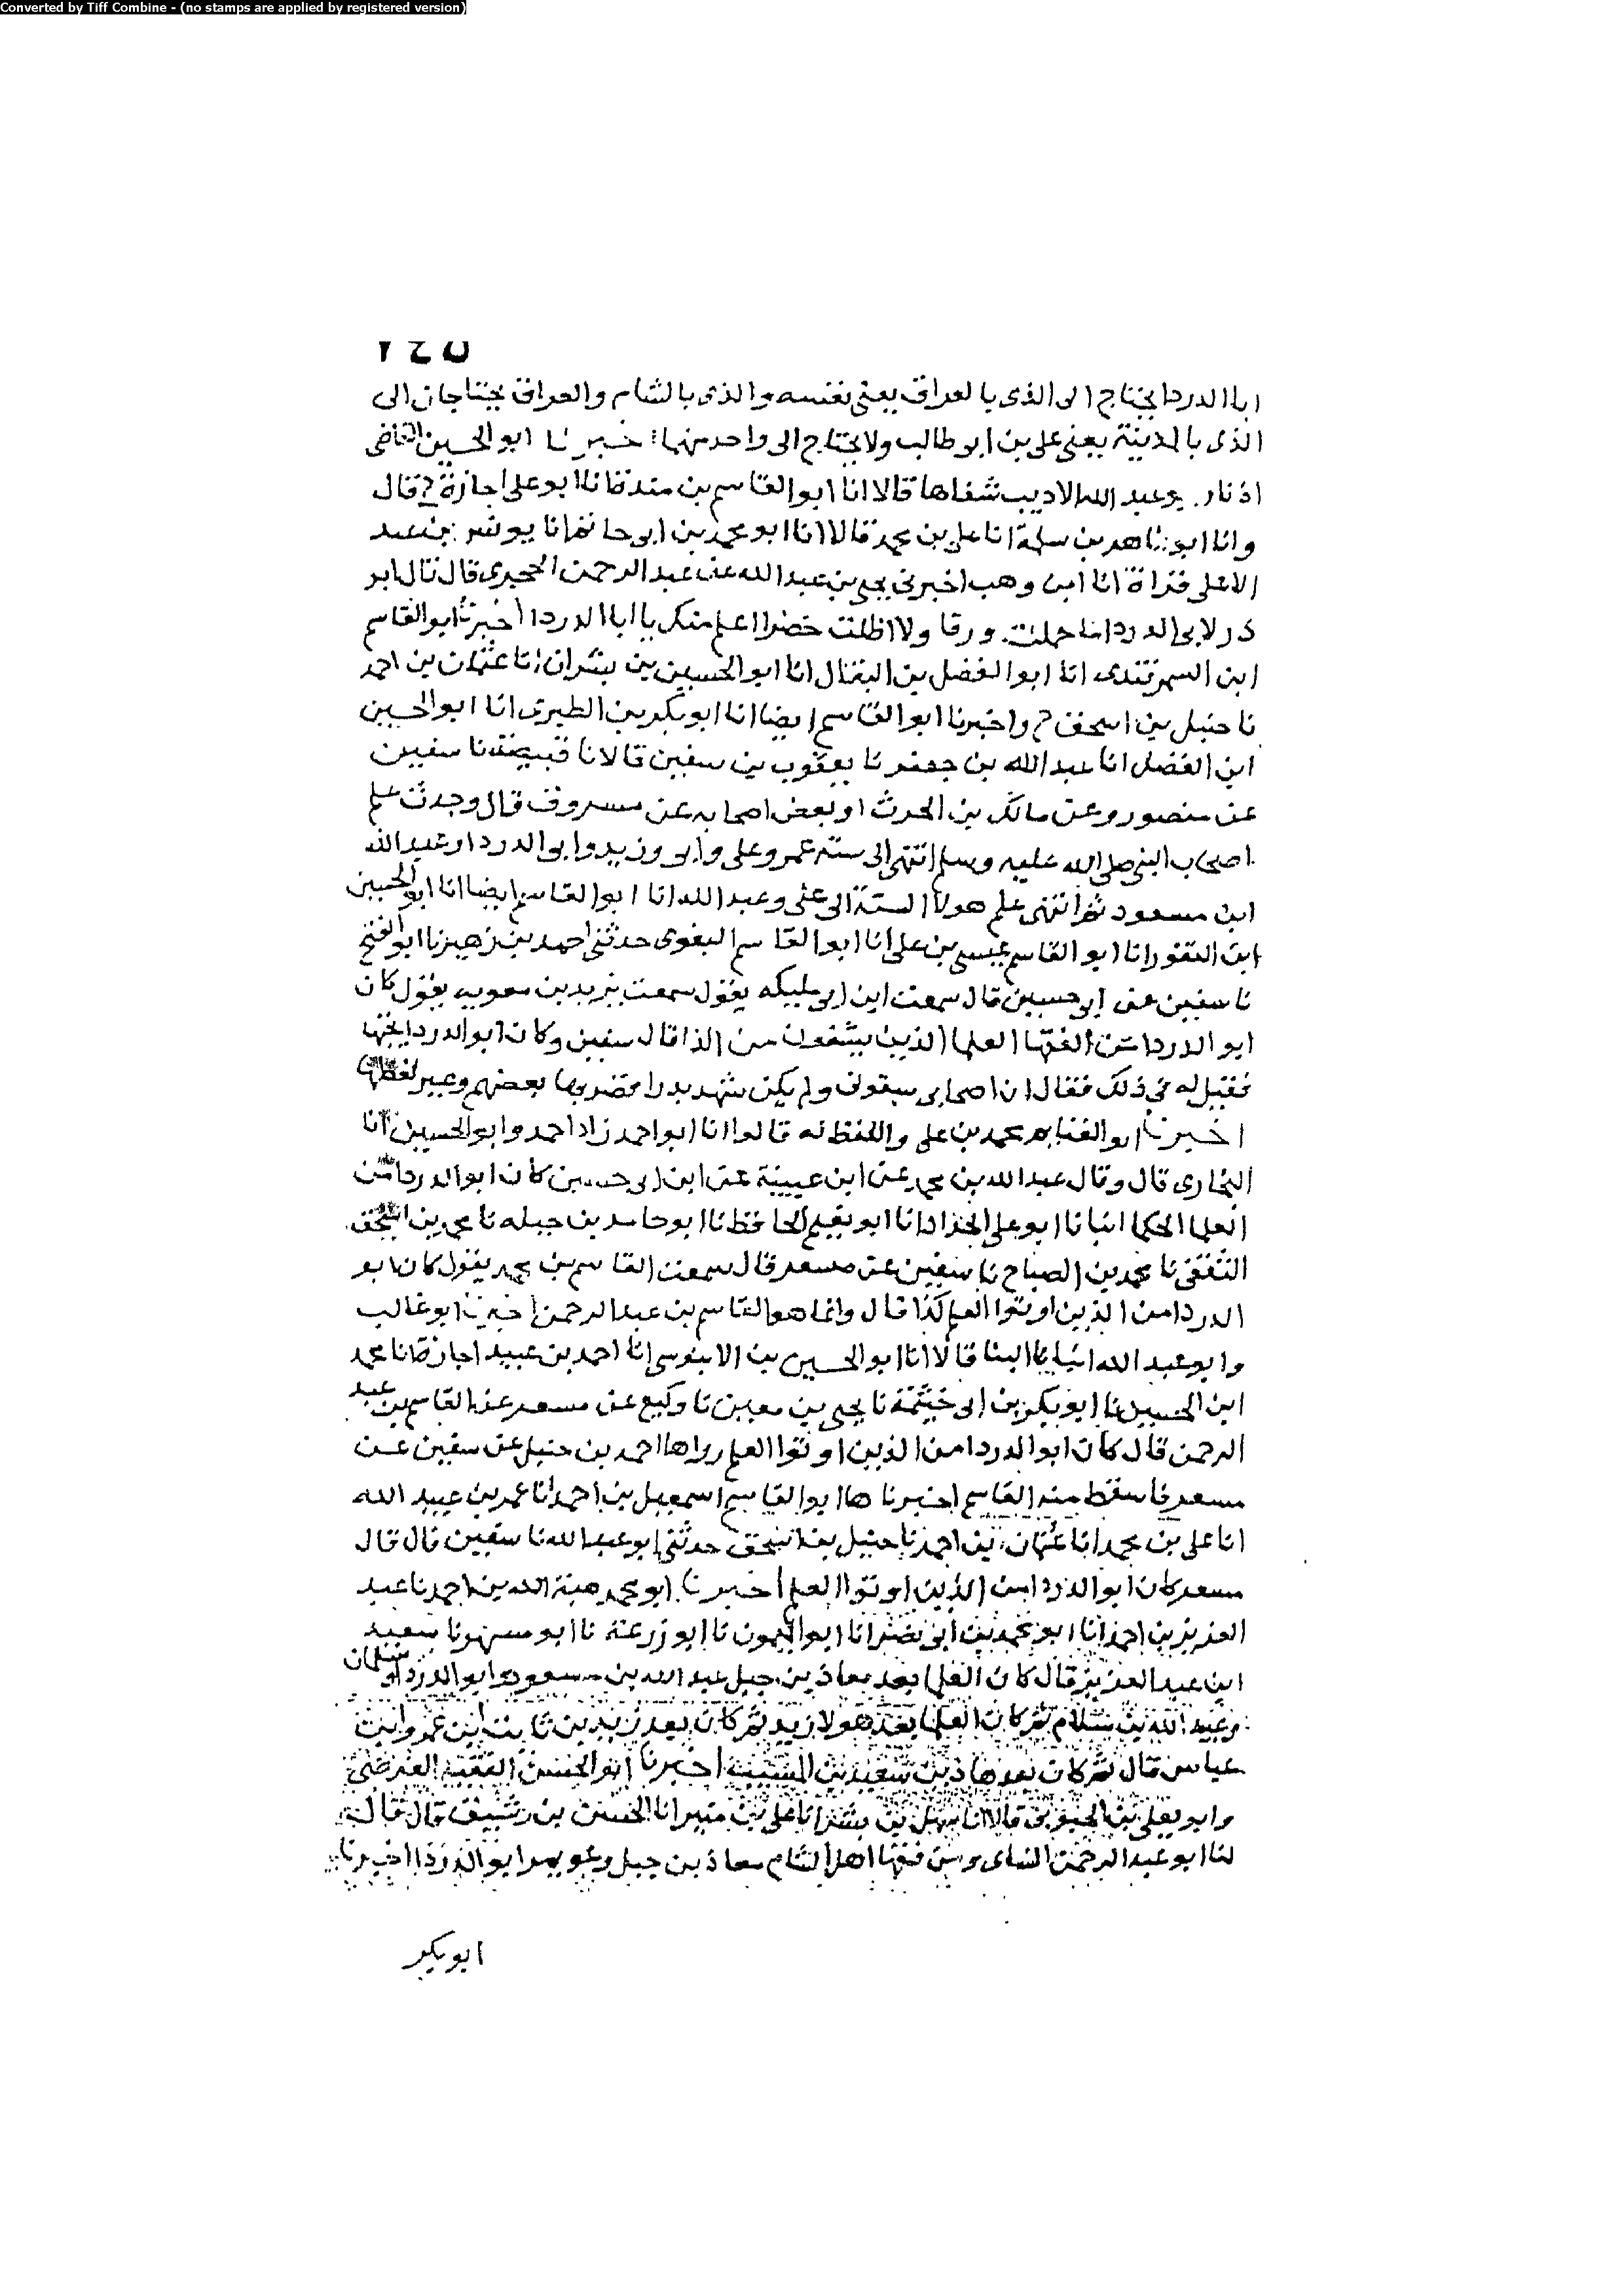 Converted by Tiff Combine - (no stamps are applied by registered version)
ابا الدردا يحتاج الى الذى بالعراق يعنى نفسه والذى بالشام والعراق يحتاجان الى
الذى بالمدينة يعنى على بن ابو طالب ولا يحتاج الى واحد منهما اخبرنا ابو الحسين القاضى
اذنا وابو عبد الله الاديب شفاها قالا انا ابو القاسم بن مندة انا ابو على اجازة ح قال
وانا ابو طاهر بن سلمة انا على بن محمد قالا انا ابو محمد بن ابى حاتم انا يونس بن عبد
الاعلى قراة انا ابن وهب اخبرنى يحيى بن عبد الله عن عبد الرحمن الحجرى قال قال ابو
ذر لابى الدردا ما حملت ورقا ولا اظلت خضرا اعلم منك يا ابا الدردا اخبرنا ابو القاسم
ابن السمرقندى انا ابو الفضل بن البقال انا ابو الحسين بن بشران انا عثمان بن احمد
نا حنبل بن اسحق ح واخبرنا ابو القاسم ايضا انا ابو بكر بن الطبرى انا ابو الحسين
ابن الفضل انا عبد الله بن جعفر نا يعقوب بن سفين قالا نا قبيصة نا سفين
عن منصور وعن مالك بن الحرث او بعض اصحابه عن مسروق قال وجدت علم
اصحاب النبى صلى الله عليه وسلم انتهى الى ستة عمر وعلى وابى وزيد وابو الدردا وعبد الله
ابن مسعود ثم انتهى علم هولا الستة الى على وعبد الله انا ابو القاسم ايضا انا ابو الحسين
ابن النقور انا ابو القاسم عيسى بن على انا ابو القاسم البغوى حدثنى احمد بن زهير نا ابو الفتح
نا سفين عن ابى حسين قال سمعت ابن ابى مليكه يقول سمعت يزيد بن معويه يقول كان
ابو الدردا من الفقها العلما الذين يشفون من الدا قال سفين وكان ابو الدردا
فقيل له فى ذلك فقال ان اصحابى سبقونى ولم يكن شهد بدرا بعضهم وغير لفظها
اخبرنا ابو الغنايم محمد بن على واللفظ له قالوا انا ابو احمد زاد احمد وابو الحسين انا
البخارى قال وقال عبد الله بن محمد عن ابن عيينة عن ابن ابى حسين كان ابو الدردا من
العلما الحكما انبانا ابو على الحداد انا ابو نعيم الحافظ نا ابو حامد بن جبله نا محمد بن اسحق
الثقفى نا محمد بن الصباح نا سفين عن مسعر قال سمعت القاسم بن محمد يقول كان ابو
الدردا من الذين اوتوا العلم كذا قال وانما هو القاسم بن عبد الرحمن اخبرنا ابو غالب
وابو عبد الله انبانا البنا قالا انا ابو الحسين بن الابنوسى انا احمد بن عبيد اجازة نا محمد
ابن الحسين نا ابو بكر بن ابى خيثمة نا يحيى بن معين نا وكيع عن مسعر عن القاسم بن عبد
الرحمن قال كان ابو الدردا من الذين اوتوا العلم رواها احمد بن حنبل عن سفين عن
مسعر فاسقط منه القاسم اخبرنا ها ابو القاسم اسمعيل بن احمد انا عمر بن عبيد الله
انا على بن محمد انا عثمان بن احمد نا حنبل بن اسحق حدثنى ابو عبد الله نا سفين قال قال
مسعر كان ابو الدردا من الذين اوتوا العلم اخبرنا ابو محمد هبة الله بن احمد نا عبد
العزيز بن احمد انا ابو محمد بن ابى نصر انا ابو الميمون نا ابو زرعة نا ابو مسهر نا سعيد
ابن عبد العزيز قال كان العلما بعد معاذ بن جبل عبد الله بن مسعود وابو الدردا وسلمان
وعبد الله بن سلام ثم كان العلما بعد هولا زيد ثم كان بعد زيد بن ثابت ابن عمر وابن
عباس قال ثم كان بعد هاذين سعيد بن المسيب اخبرنا ابو الحسن الفقيه الفرضى
وابو يعلى بن الحبوبى قالا انا سهل بن بشر انا على بن منير انا الحسن بن رشيق قال قال
لنا ابو عبد الرحمن النساى ومن فقها اهل الشام معاذ بن جبل وعويمر ابو الدردا اخبرنا
ابو بكر